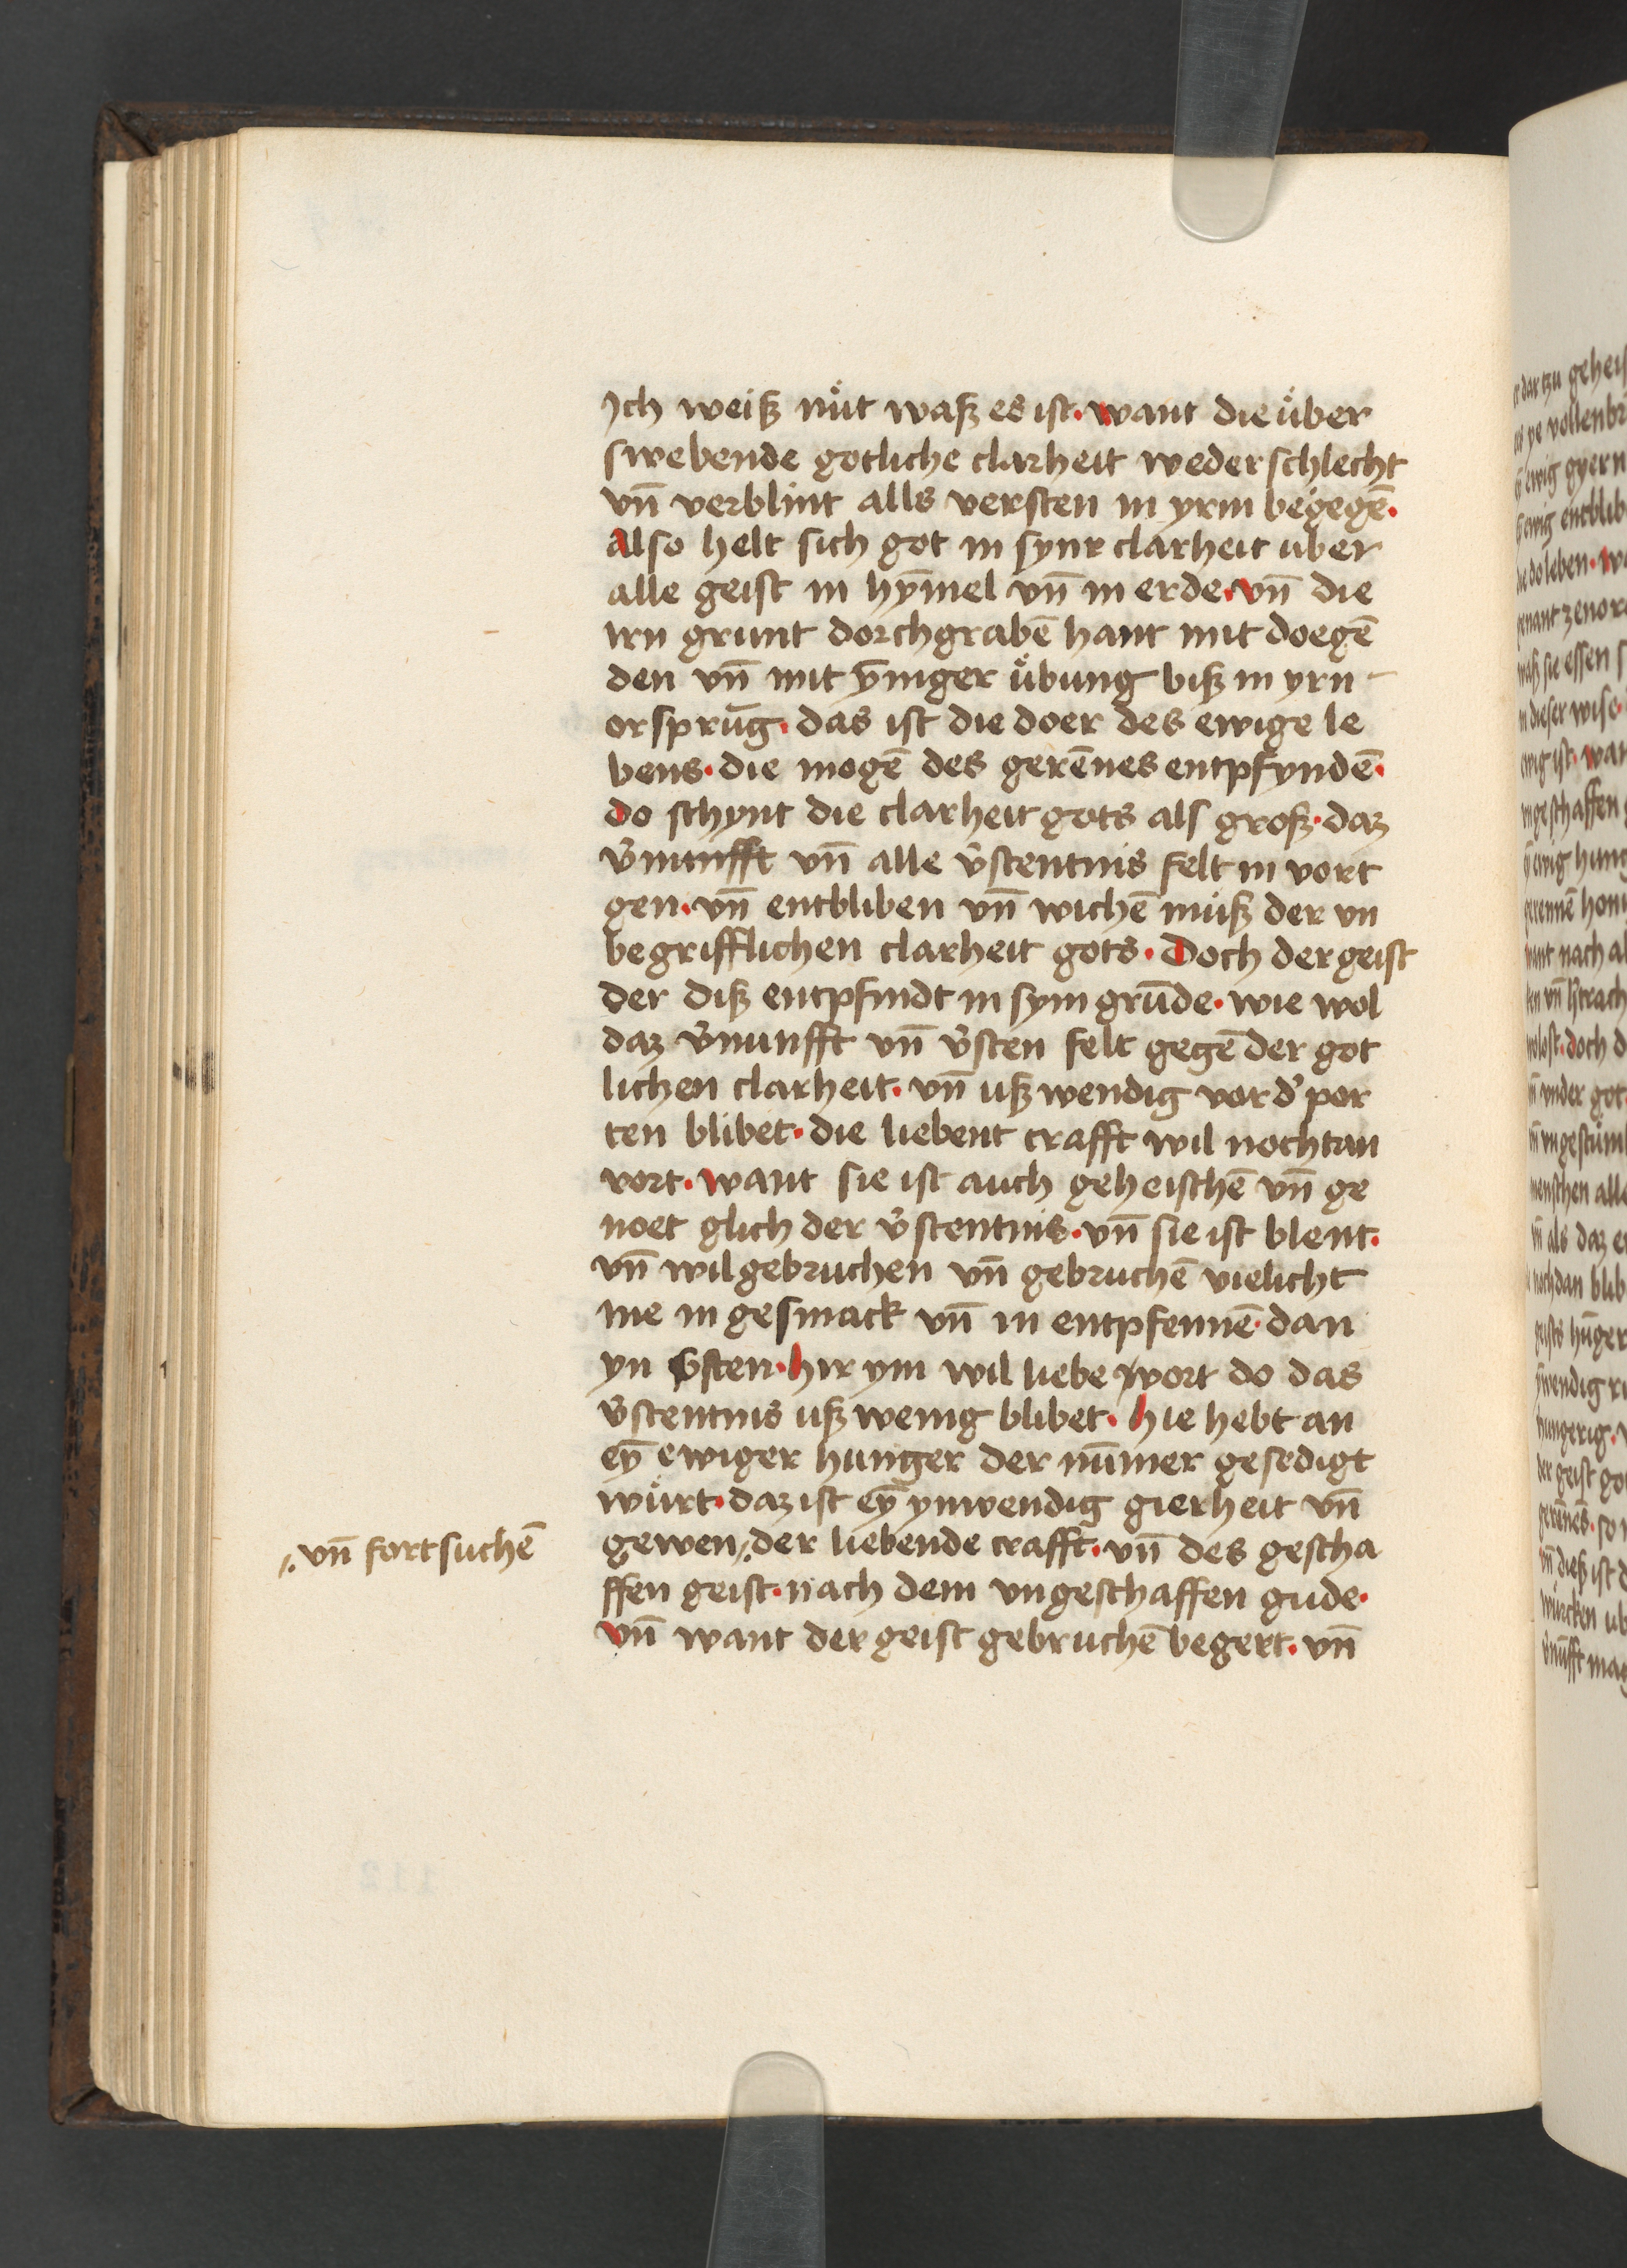 Jch weiß nu̇t waß es ist· want die u̇ber
swebende gotliche clarheit weder schlecht
vn̄ verblint alls versten in yrm begegē·
also helt sich got in synr clarheit uber
alle geist in hȳmel vn̄ in erde· vn̄ die
irn grunt dorchgrabē hant mit doegē
den vn̄ mit ȳniger u̇bung biß in yrn
orsprūg· das ist die doer des ewige le
bens· die mogē des gerēnes entpfyndē·
do schynt die clarheit gots als groß· daz
v̓nunfft vn̄ alle v̓stentnis felt in vort
gen· vn̄ entbliben vn̄ wichē mu̇ß der vn
begrifflichen clarheit gots· Doch der geist
der diß entpfindt in sym grūde· wie wol
daz v̓nunfft vn̄ v̓sten felt gegē der got
lichen clarheit· vn̄ uß wendig vor d̓ por
ten blibet· die liebent crafft wil nochtan
vort· want sie ist auch geheischē vn̄ ge
noet glich der v̓stentnis· vn̄ sie ist blent·
vn̄ wil gebruchen vn̄ gebruchē vielicht
me in gesmack vn̄ in entpfennē· dan
yn v̓sten· hir ym wil liebe vort do das
v̓stentnis uß wenig blibet· hie hebt an
eȳ ewiger hunger der nūmer gesedigt
wu̇rt· daz ist eȳ ynwendig gierheit vn̄
gewen·/. der liebende crafft· vn̄ des gescha
ffen geist· nach dem vngeschaffen gude·
vn̄ want der geist gebruchē begert· vn̄
·/. vn̄ fort suchē